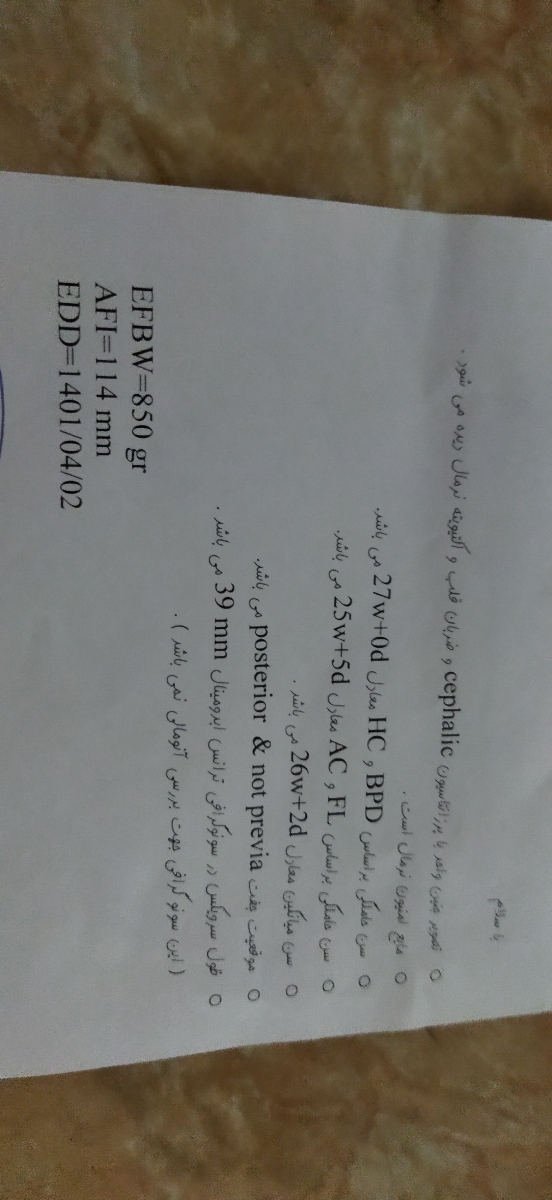 با سلام
○ تصویر جنین واحد با پرزانتاسیون cephalic و ضربان قلب و آکتیویته نرمال دیده می شود .
○ مایع امنیون نرمال است .
○ سن حاملگی براساس BPD و HC معادل 27w+0d می باشد.
○ سن حاملگی براساس FL و AC معادل 25w+5d می باشد.
○ سن میانگین معادل 26w+2d می باشد .
○ موقعیت جفت posterior & not previa می باشد.
○ طول سرویکس در سونوگرافی ترانس ابدومینال 39 mm می باشد .
( این سونوگرافی جهت بررسی آنومالی نمی باشد ) .
EFBW=850 gr
AFI=114 mm
EDD=1401/04/02